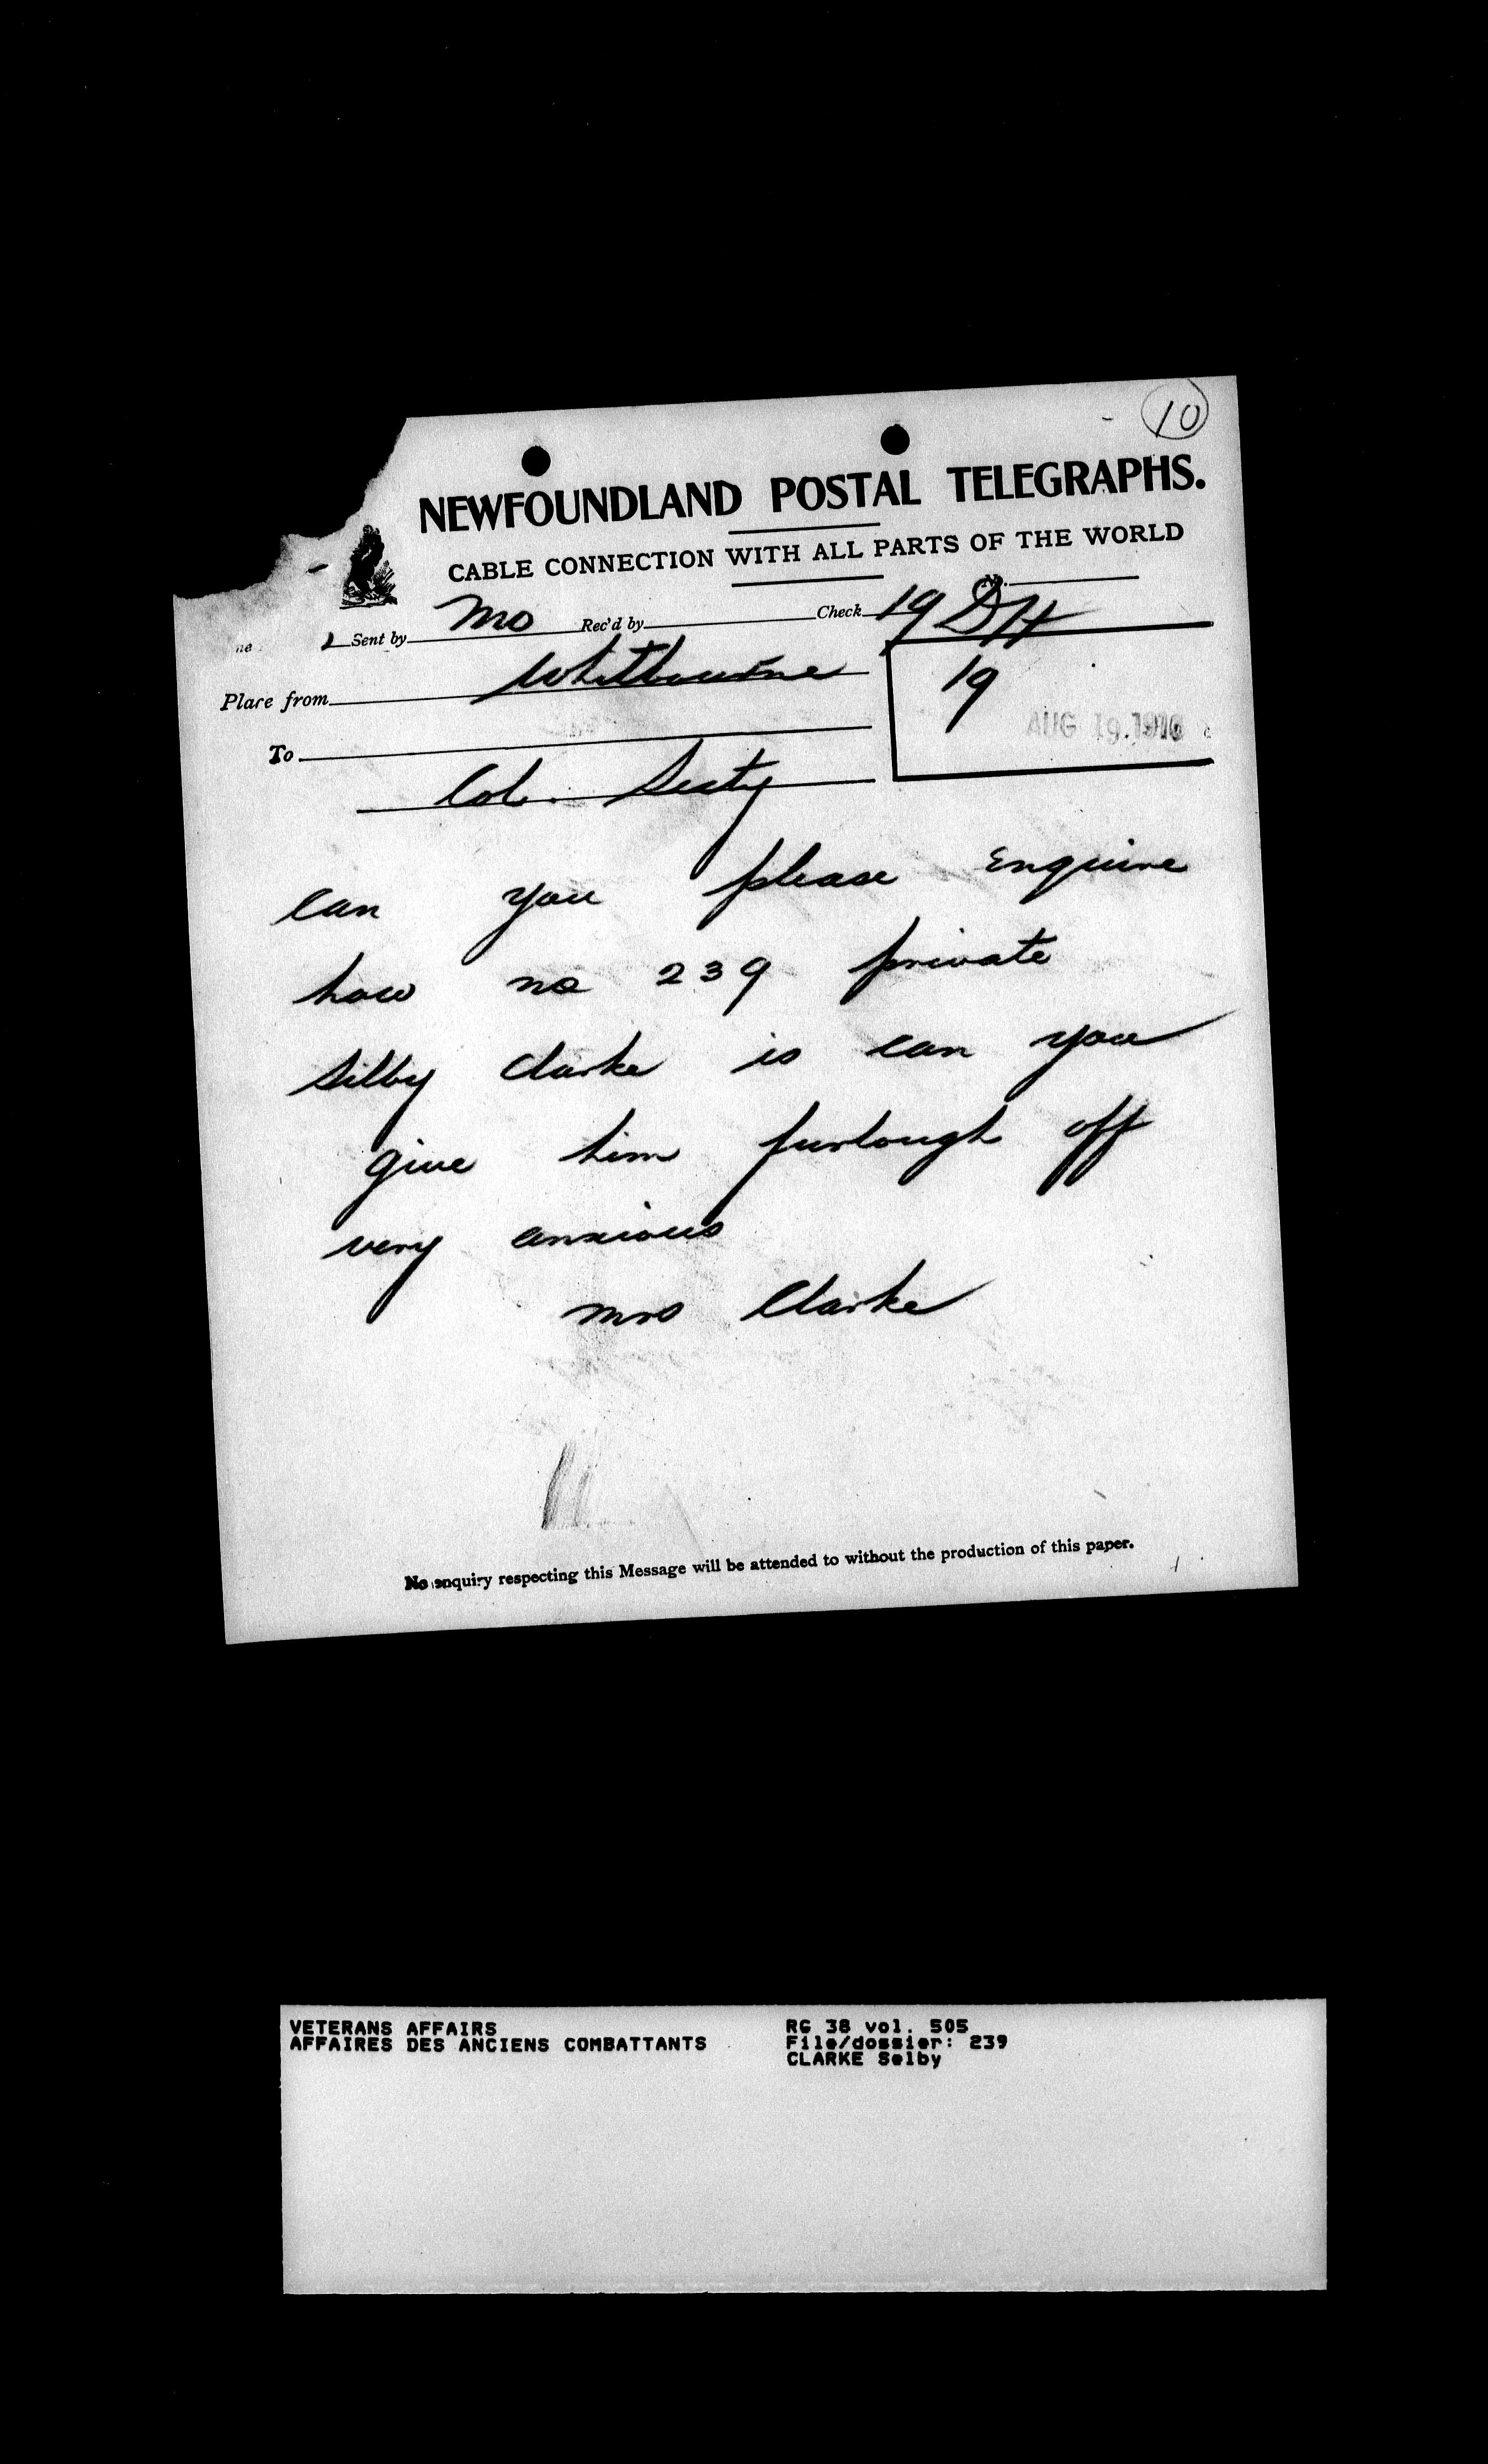 10
NEWFOUNDLAND POSTAL TELEGRAPHS.
CABLE CONNECTION WITH ALL PARTS OF THE WORLD
Sent by Mo Rec'd by Check 19 DH
Place from Whitbourne
19
AUG 19.1916
To
Col. Secty
Can you please Enquire
how no 239 private
Silby Clarke is can you
give him furlough off
very anxious
Mrs Clarke
No enquiry respecting this Message will be attended to without the production of this paper.
VETERANS AFFAIRS
AFFAIRES DES ANCIENS COMBATTANTS
RG 38 vol. 505
File/dossier: 239
CLARKE Selby